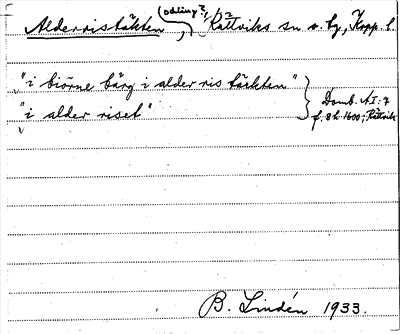 Alderristäkten (odling?), Rättviks sn o. by, Kopp. l.
"i biörne bärg i alder ris täckten"
"i alder riset"
Domb. A I: 7
f. 8 h 1600; Rättvik
B. Lindén 1933.